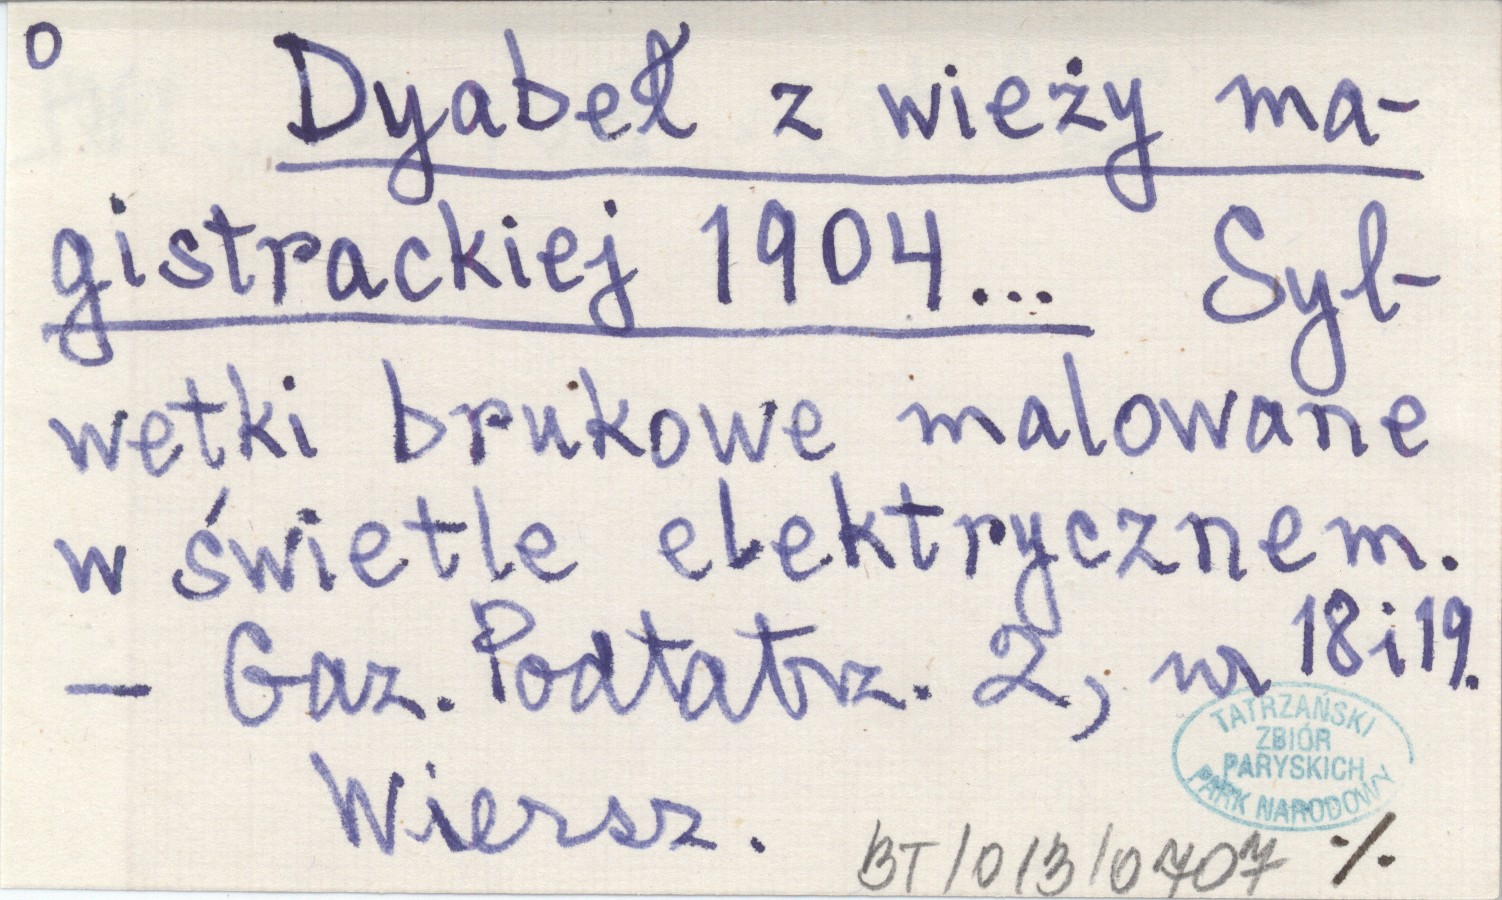 O
Dyabeł z wieży ma-
gistrackiej 1904... Syl-
wetki brukowe malowane
w świetle elektrycznem.
— Gaz. Podtatrz. 2, nr 18 i 19.
Wiersz.
TATRZAŃSKI
ZBIÓR
PARYSKICH
PARK NARODOWY
BT/013/0707 ./.